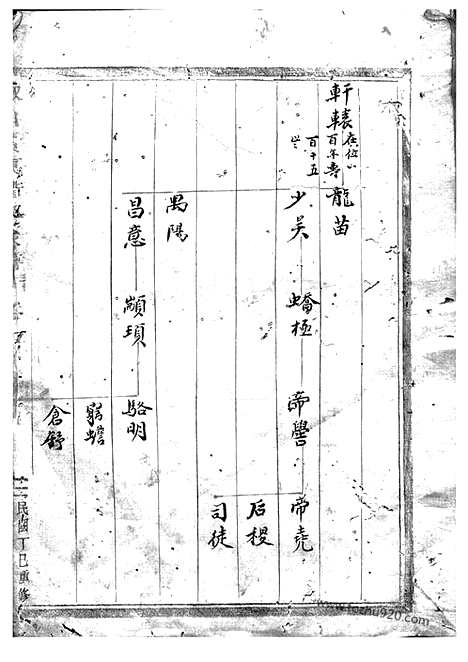 軒轅 在位
百年壽
百十五
龍苗
少昊 蟜極 帝嚳 帝堯
后稷
司徒
禺陽
昌意 顓頊 駱明
窮蟬
倉舒
民國丁巳重修
www.foshu920.com